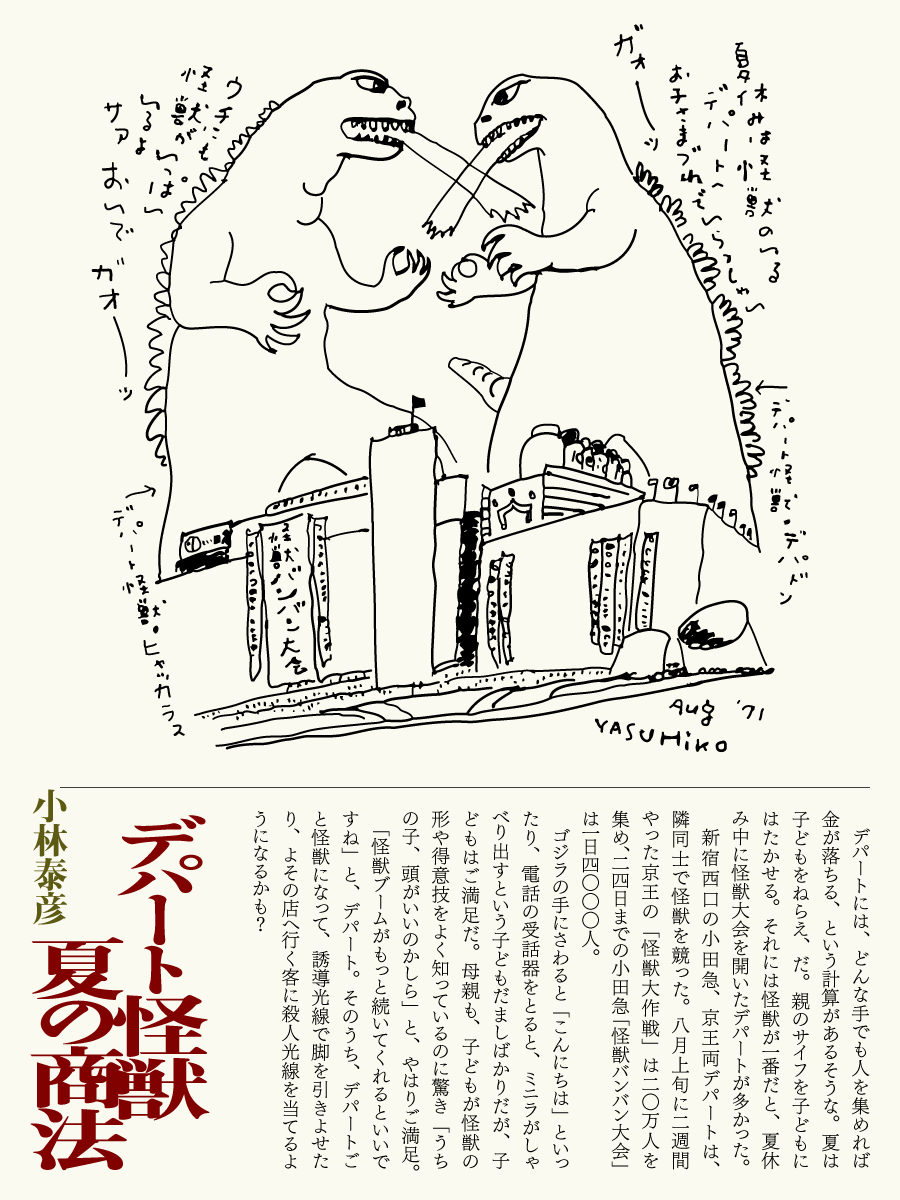 ガオーッ
夏休みは怪獣のいる
タイムー
デパートへいらっしゃい
お子さまづれで
ウチにも
怪獣が
いっぱい
いるよ
サァ おいで
ガオーッ
デパート怪獣・デパドン
デパート怪獣・ヒャッカラス
怪獣バンバン大会
Aug '71
YASUHiKO
デパート怪獣
夏の商法
小林泰彦
デパートには、どんな手でも人を集めれば
金が落ちる、という計算があるそうな。夏は
子どもをねらえ、だ。親のサイフを子どもに
はたかせる。それには怪獣が一番だと、夏休
み中に怪獣大会を開いたデパートが多かった。
新宿西口の小田急、京王両デパートは、
隣同士で怪獣を競った。八月上旬に二週間
やった京王の「怪獣大作戦」は二〇万人を
集め、二四日までの小田急「怪獣バンバン大会」
は一日四〇〇〇人。
ゴジラの手にさわると「こんにちは」といっ
たり、電話の受話器をとると、ミニラがしゃ
べり出すという子どもだましばかりだが、子
どもはご満足だ。母親も、子どもが怪獣の
形や得意技をよく知っているのに驚き「うち
の子、頭がいいのかしら」と、やはりご満足。
「怪獣ブームがもっと続いてくれるといいで
すね」と、デパート。そのうち、デパートご
と怪獣になって、誘導光線で脚を引きよせた
り、よその店へ行く客に殺人光線を当てるよ
うになるかも？